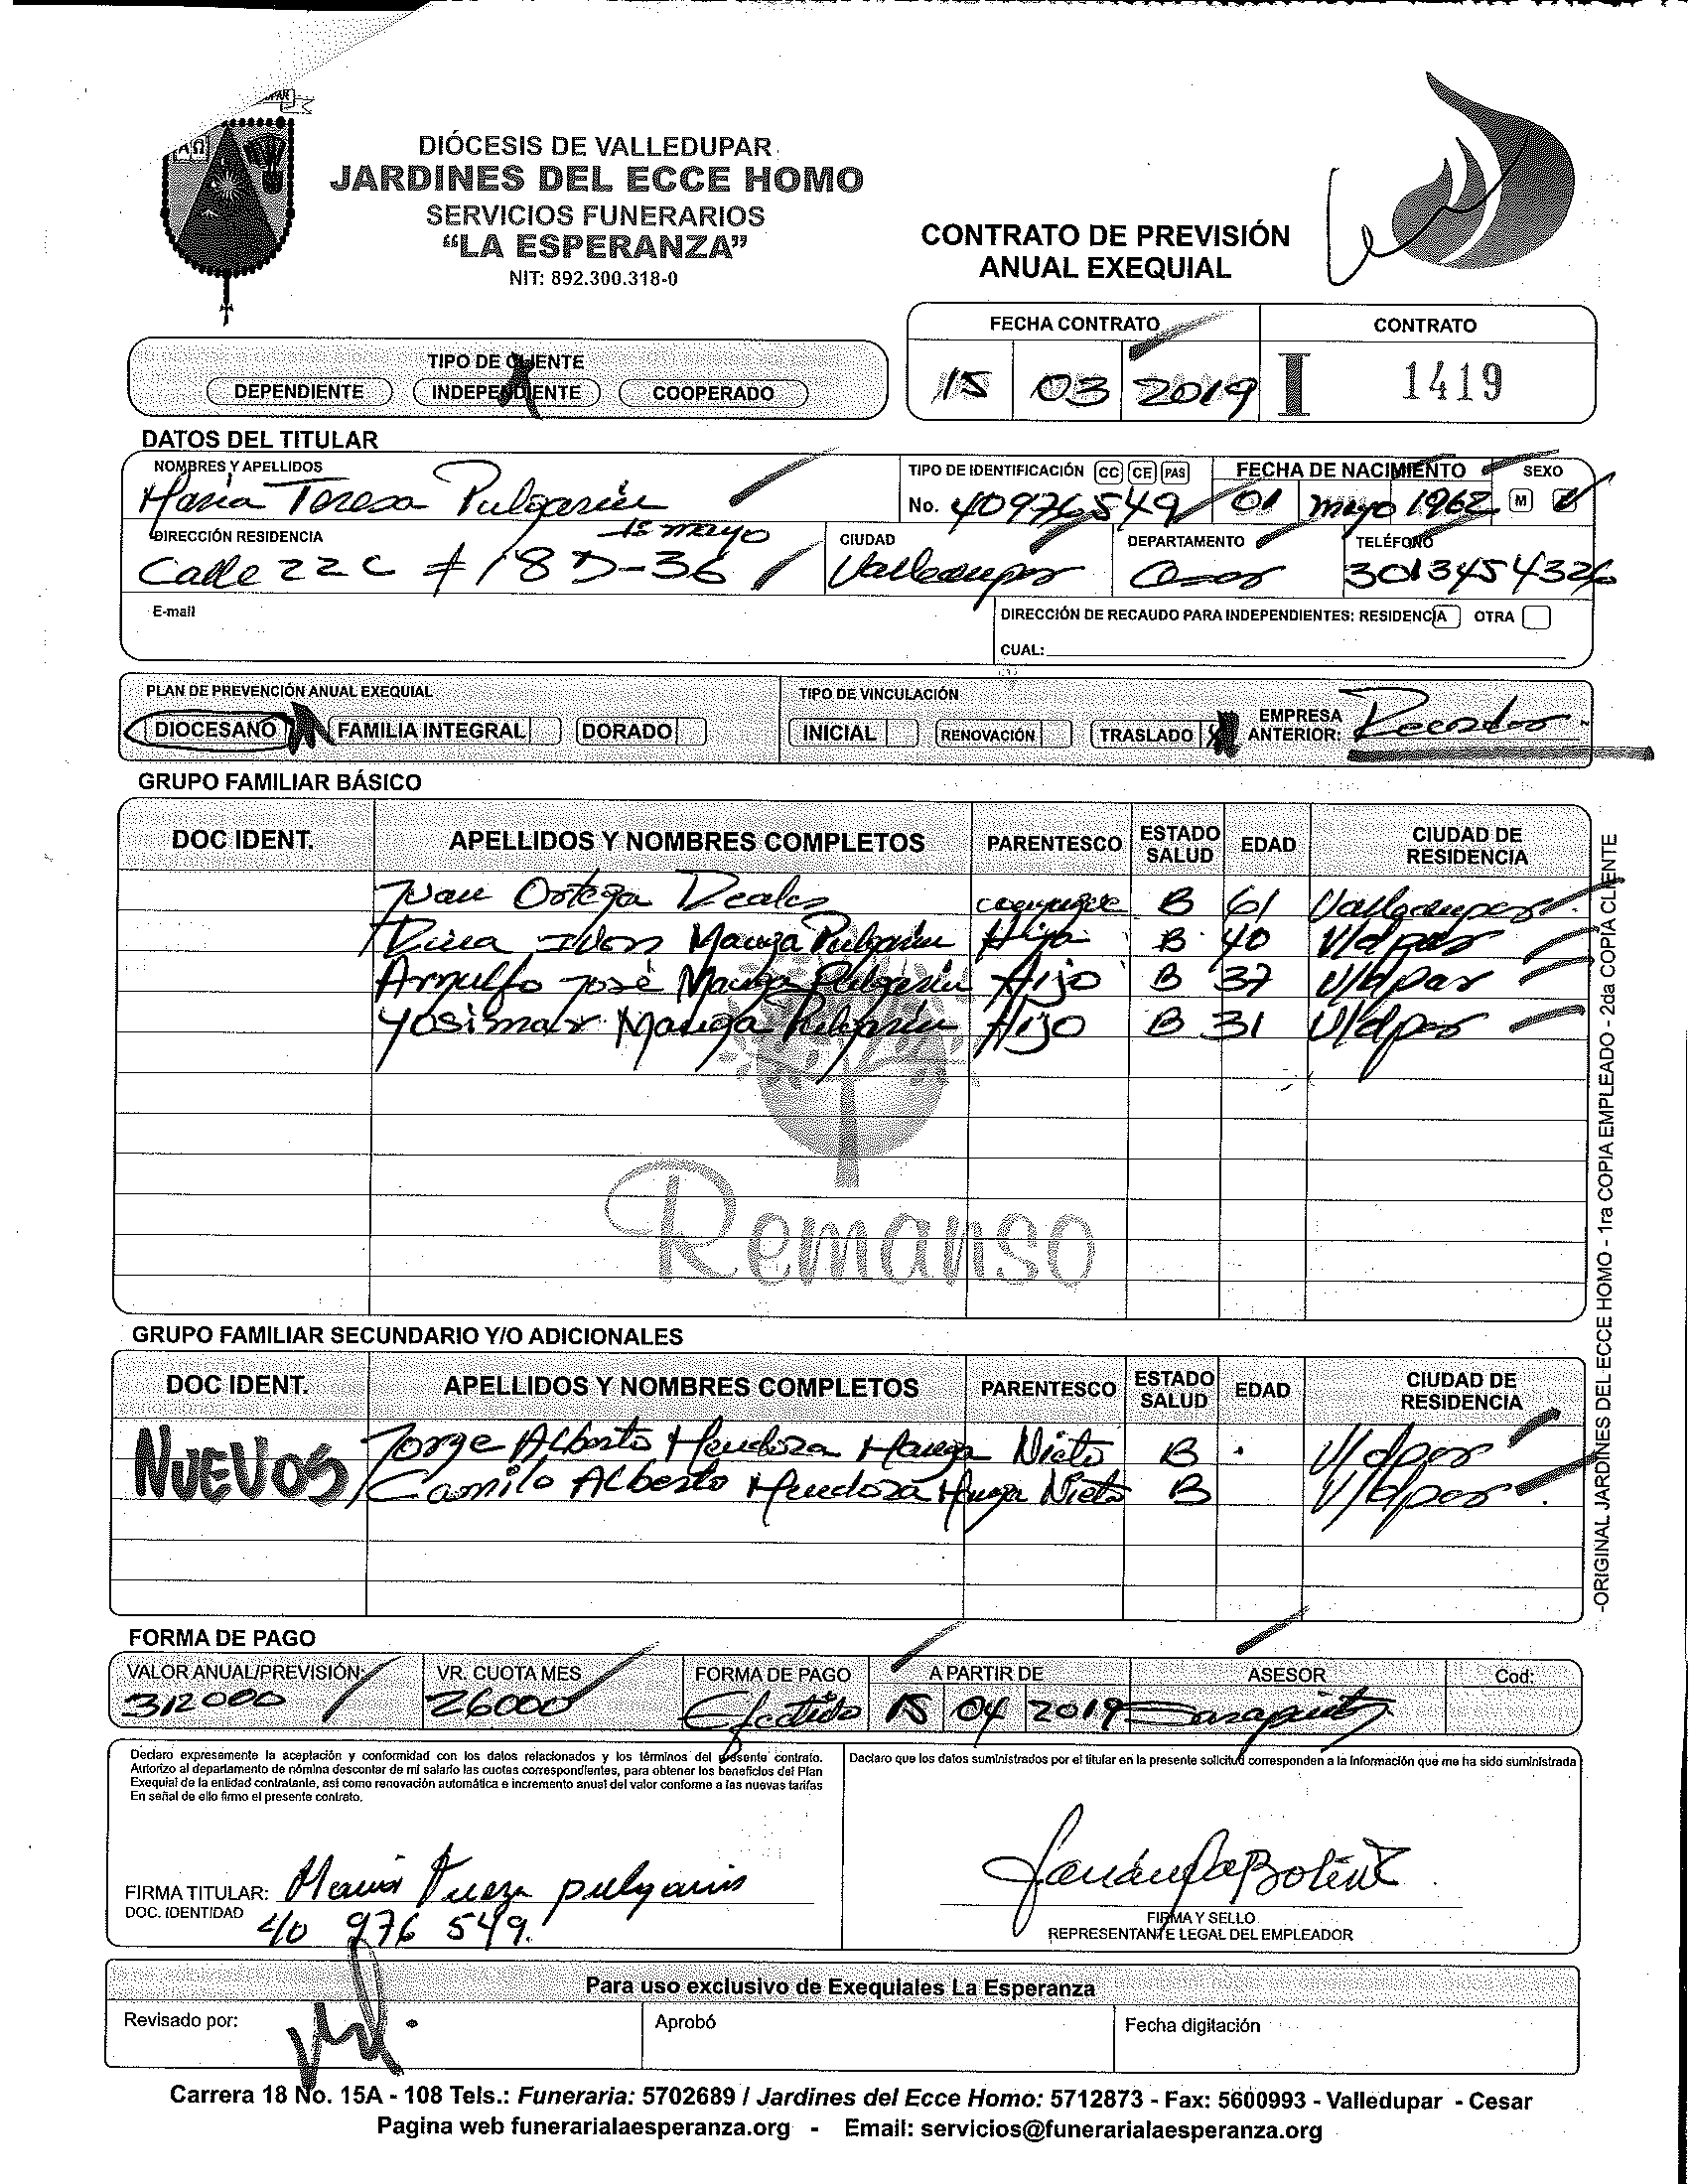 DIÓCESIS DE VALLEDUPAR
JARDINES DEL ECCE HOMO
SERVICIOS FUNERARIOS
“LA ESPERANZA”
NIT: 892.300.318-0
CONTRATO DE PREVISIÓN
ANUAL EXEQUIAL
FECHA CONTRATO CONTRATO
15 03 2019 I 1419
TIPO DE CLIENTE
DEPENDIENTE INDEPENDIENTE COOPERADO
DATOS DEL TITULAR
NOMBRES Y APELLIDOS TIPO DE IDENTIFICACIÓN CC CE PAS FECHA DE NACIMIENTO SEXO
Maria Teresa Pulgarin No. 40976549 01 mayo 1962 M
DIRECCIÓN RESIDENCIA 1º mayo CIUDAD DEPARTAMENTO TELÉFONO
Calle 22 C # 18 D-36 Valledupar Cesar 3013454326
E-mail DIRECCIÓN DE RECAUDO PARA INDEPENDIENTES: RESIDENCIA OTRA
CUAL:
PLAN DE PREVENCIÓN ANUAL EXEQUIAL TIPO DE VINCULACIÓN
DIOCESANO FAMILIA INTEGRAL DORADO INICIAL RENOVACIÓN TRASLADO EMPRESA ANTERIOR: Recordar
GRUPO FAMILIAR BÁSICO
DOC IDENT. APELLIDOS Y NOMBRES COMPLETOS PARENTESCO ESTADO SALUD EDAD CIUDAD DE RESIDENCIA
Juan Ortega Deales conyugue B 61 Valledupar
Dina Ivon Manga Pulgarin Hija B 40 V/dpar
Arnulfo José Manga Pulgarin Hijo B 37 V/dpar
Yosimar Manga Pulgarin Hijo B 31 V/dpar
Remanso
GRUPO FAMILIAR SECUNDARIO Y/O ADICIONALES
DOC IDENT. APELLIDOS Y NOMBRES COMPLETOS PARENTESCO ESTADO SALUD EDAD CIUDAD DE RESIDENCIA
NUEVOS Jorge Alberto Mendoza Manga Nieto B V/dpar
Camilo Alberto Mendoza Manga Nieto B V/dpar
FORMA DE PAGO
VALOR ANUAL/PREVISIÓN: VR. CUOTA MES FORMA DE PAGO A PARTIR DE ASESOR Cod:
312000 26000 Efectivo 15 04 2019
Declaro expresamente la aceptación y conformidad con los datos relacionados y los términos del presente contrato.
Autorizo al departamento de nómina descontar de mi salario las cuotas correspondientes, para obtener los beneficios del Plan
Exequial de la entidad contratante, así como renovación automática e incremento anual del valor conforme a las nuevas tarifas
En señal de ello firmo el presente contrato.
Declaro que los datos suministrados por el titular en la presente solicitud corresponden a la información que me ha sido suministrada
FIRMA TITULAR: Maria Tereza pulgarin
DOC. IDENTIDAD 40 976 549.
FIRMA Y SELLO
REPRESENTANTE LEGAL DEL EMPLEADOR
Para uso exclusivo de Exequiales La Esperanza
Revisado por: Aprobó Fecha digitación
Carrera 18 No. 15A - 108 Tels.: Funeraria: 5702689 / Jardines del Ecce Homo: 5712873 - Fax: 5600993 - Valledupar - Cesar
Pagina web funerarialaesperanza.org - Email: servicios@funerarialaesperanza.org
-ORIGINAL JARDINES DEL ECCE HOMO - 1ra COPIA EMPLEADO - 2da COPIA CLIENTE